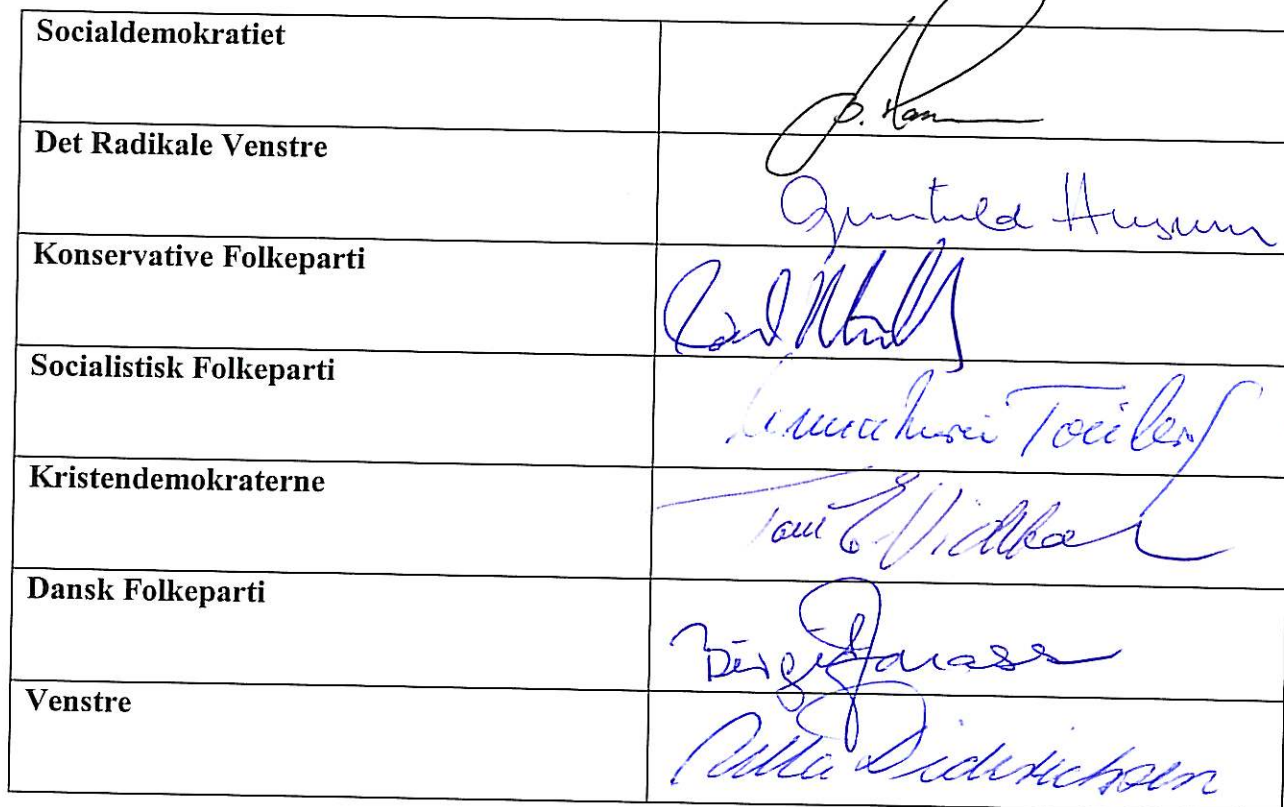 Socialdemokratiet
Det Radikale Venstre
Gunhild Husum
Konservative Folkeparti
Socialistisk Folkeparti
Kristendemokraterne
Dansk Folkeparti
Birgit
Venstre
Ulla Diderichsen